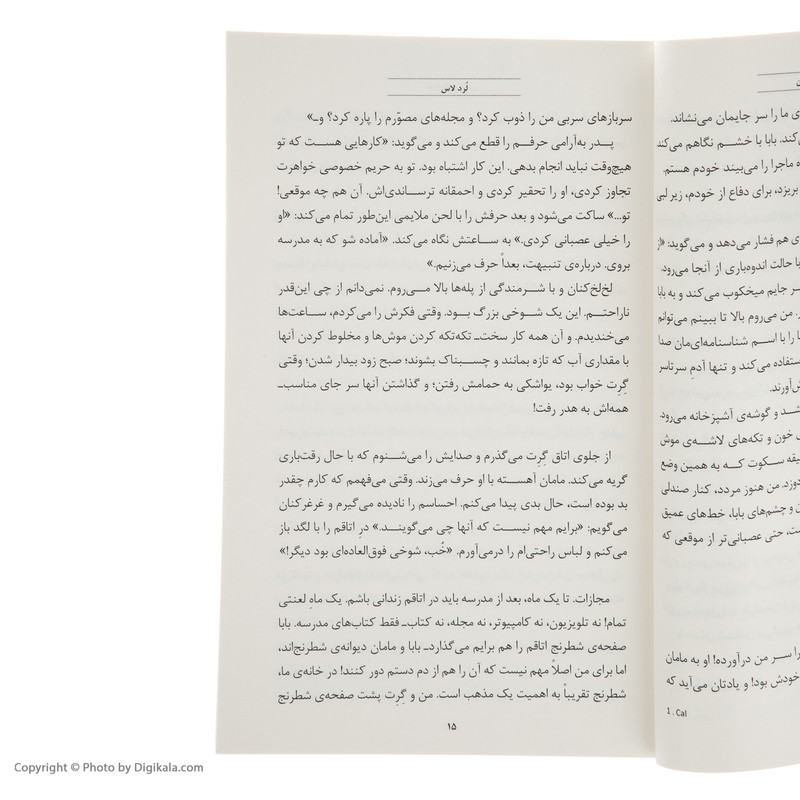 لُرد لاس
سربازهای سربی من را ذوب کرد؟ و مجله‌های مصوّرم را پاره کرد؟ وـ»
پدر به‌آرامی حرفم را قطع می‌کند و می‌گوید: «کارهایی هست که تو
هیچ‌وقت نباید انجام بدهی. این کار اشتباه بود. تو به حریم خصوصی خواهرت
تجاوز کردی، او را تحقیر کردی و احمقانه ترساندی‌اش. آن هم چه موقعی!
تو...» ساکت می‌شود و بعد حرفش را با لحن ملایمی این‌طور تمام می‌کند: «او
را خیلی عصبانی کردی.» به ساعتش نگاه می‌کند. «آماده شو که به مدرسه
بروی. درباره‌ی تنبیهت، بعداً حرف می‌زنیم.»
لخ‌لخ‌کنان و با شرمندگی از پله‌ها بالا می‌روم. نمی‌دانم از چی این‌قدر
ناراحتم. این یک شوخی بزرگ بود. وقتی فکرش را می‌کردم، ساعت‌ها
می‌خندیدم. و آن همه کار سخت‌ـ تکه‌تکه کردن موش‌ها و مخلوط کردن آنها
با مقداری آب که تازه بمانند و چسبناک بشوند؛ صبح زود بیدار شدن؛ وقتی
گِرِت خواب بود، یواشکی به حمامش رفتن؛ و گذاشتن آنها سر جای مناسب‌ـ
همه‌اش به هدر رفت!
از جلوی اتاق گِرِت می‌گذرم و صدایش را می‌شنوم که با حال رقت‌باری
گریه می‌کند. مامان آهسته با او حرف می‌زند. وقتی می‌فهمم که کارم چقدر
بد بوده است، حال بدی پیدا می‌کنم. احساسم را نادیده می‌گیرم و غرغرکنان
می‌گویم: «برایم مهم نیست که آنها چی می‌گویند.» درِ اتاقم را با لگد باز
می‌کنم و لباس راحتی‌ام را درمی‌آورم. «خُب، شوخی فوق‌العاده‌ای بود دیگر!»
مجازات. تا یک ماه، بعد از مدرسه باید در اتاقم زندانی باشم. یک ماهِ لعنتی
تمام! نه تلویزیون، نه کامپیوتر، نه مجله، نه کتاب‌ـ فقط کتاب‌های مدرسه. بابا
صفحه‌ی شطرنج اتاقم را هم برایم می‌گذاردـ بابا و مامان دیوانه‌ی شطرنج‌اند،
اما برای من اصلاً مهم نیست که آن را هم از دم دستم دور کنند! در خانه‌ی ما،
شطرنج تقریباً به اهمیت یک مذهب است. من و گِرِت پشت صفحه‌ی شطرنج
۱۵
ی ما را سر جایمان می‌نشاند.
کند. بابا با خشم نگاهم می‌کند
ه ماجرا را می‌بیند خودم هستم.
بریزد، برای دفاع از خودم، زیر لبی
ی هم فشار می‌دهد و می‌گوید: «از
با حالت اندوه‌باری از آنجا می‌رود.
سر جایم میخکوب می‌کند و به بابا
من می‌روم بالا تا ببینم می‌توانم
ا را با اسم شناسنامه‌ای‌مان صدا
ستفاده می‌کند و تنها آدمِ سرتاسر
ش‌آورند.
شد و گوشه‌ی آشپزخانه می‌رود.
خون و تکه‌های لاشه‌ی موش
یقه سکوت که به همین وضع
دوزد. من هنوز مردد، کنار صندلی
ن و چشم‌های بابا، خط‌های عمیق
ست، حتی عصبانی‌تر از موقعی که
را سر من درآورده! او به مامان
خودش بود! و یادتان می‌آید که
1 . Cal
Copyright © Photo by Digikala.com